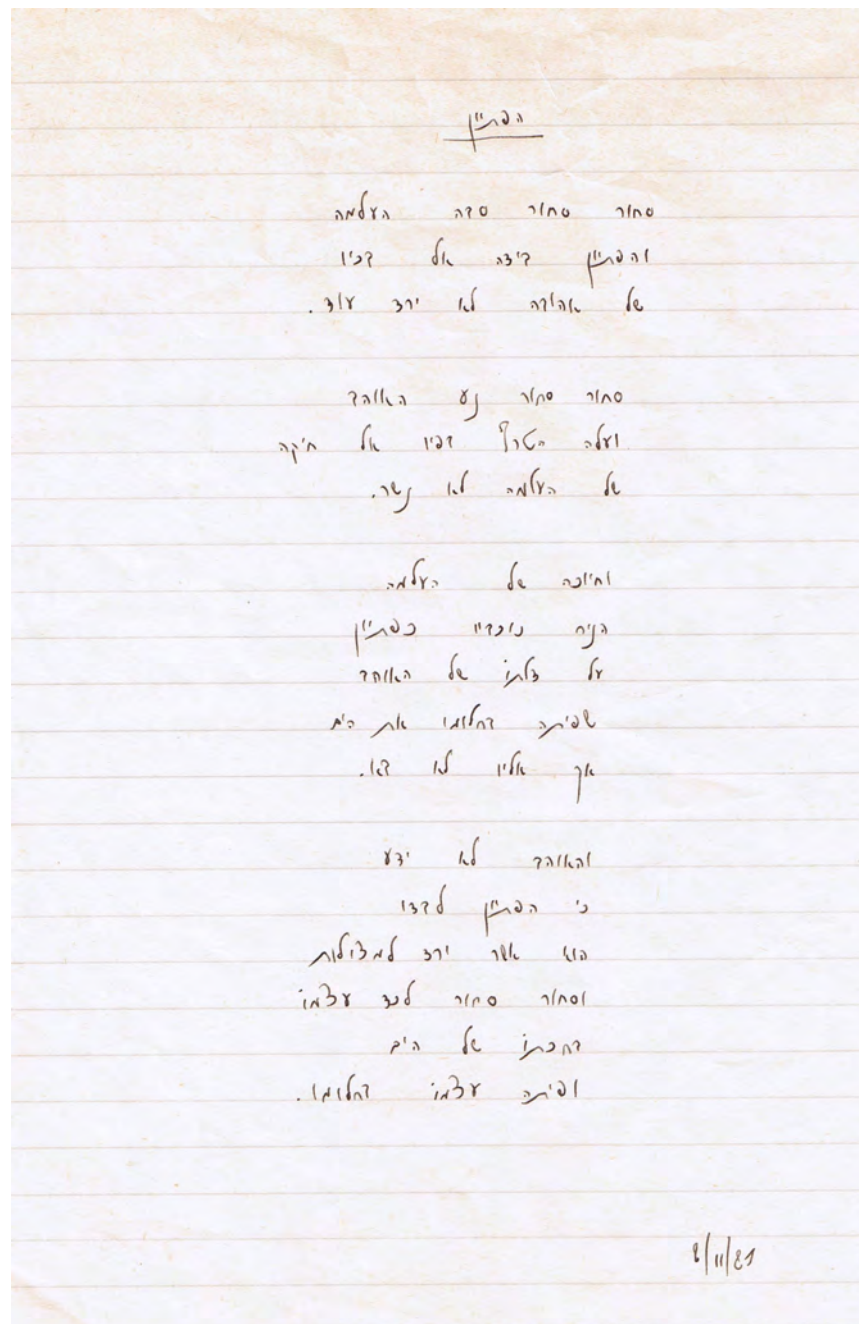 הפתיון
סחור סחור סבה העלמה
והפתיון בידה אל בכיו
של אהובה לא ירד עוד.
סחור סחור נע האוהב
ועלה הטרף בפיו אל חיקה
של העלמה לא נשר.
וחיוכה של העלמה
הניח כפתיון
על דלתו של האוהב
שפיתה בחלומו את הים
אך אליו לא בא.
והאוהב לא ידע
כי הפתיון לבדו
הוא אשר ירד למצולות
וסחור סחור לכד עצמו
בחכתו של הים
ופיתה עצמו בחלומו.
8/11/81